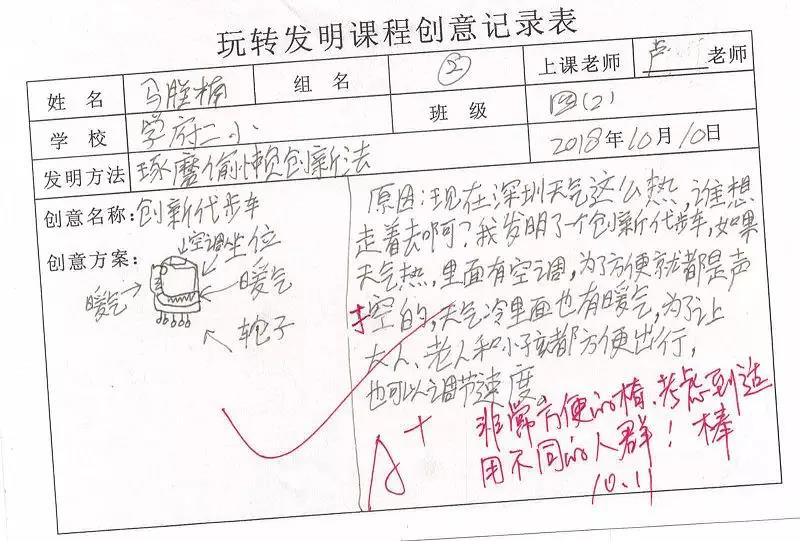 玩转发明课程创意记录表
姓名 马胜楠 组名 ② 上课老师 卢 老师
学校 学府二小 班级 四(2)
2018年10月10日
发明方法 琢磨偷懒创新法
创意名称:创新代步车
创意方案:
空调 坐位
暖气
暖气
轮子
原因:现在深圳天气这么热,谁想
走着去啊?我发明了一个创新代步车,如果
天气热,里面有空调,为了方便就都是声
扌空的,天气冷里面也有暖气,为了让
大人、老人和小孩都方便出行,
也可以调节速度。
A+
非常方便的椅,考虑到适
用不同的人群!棒
10.11